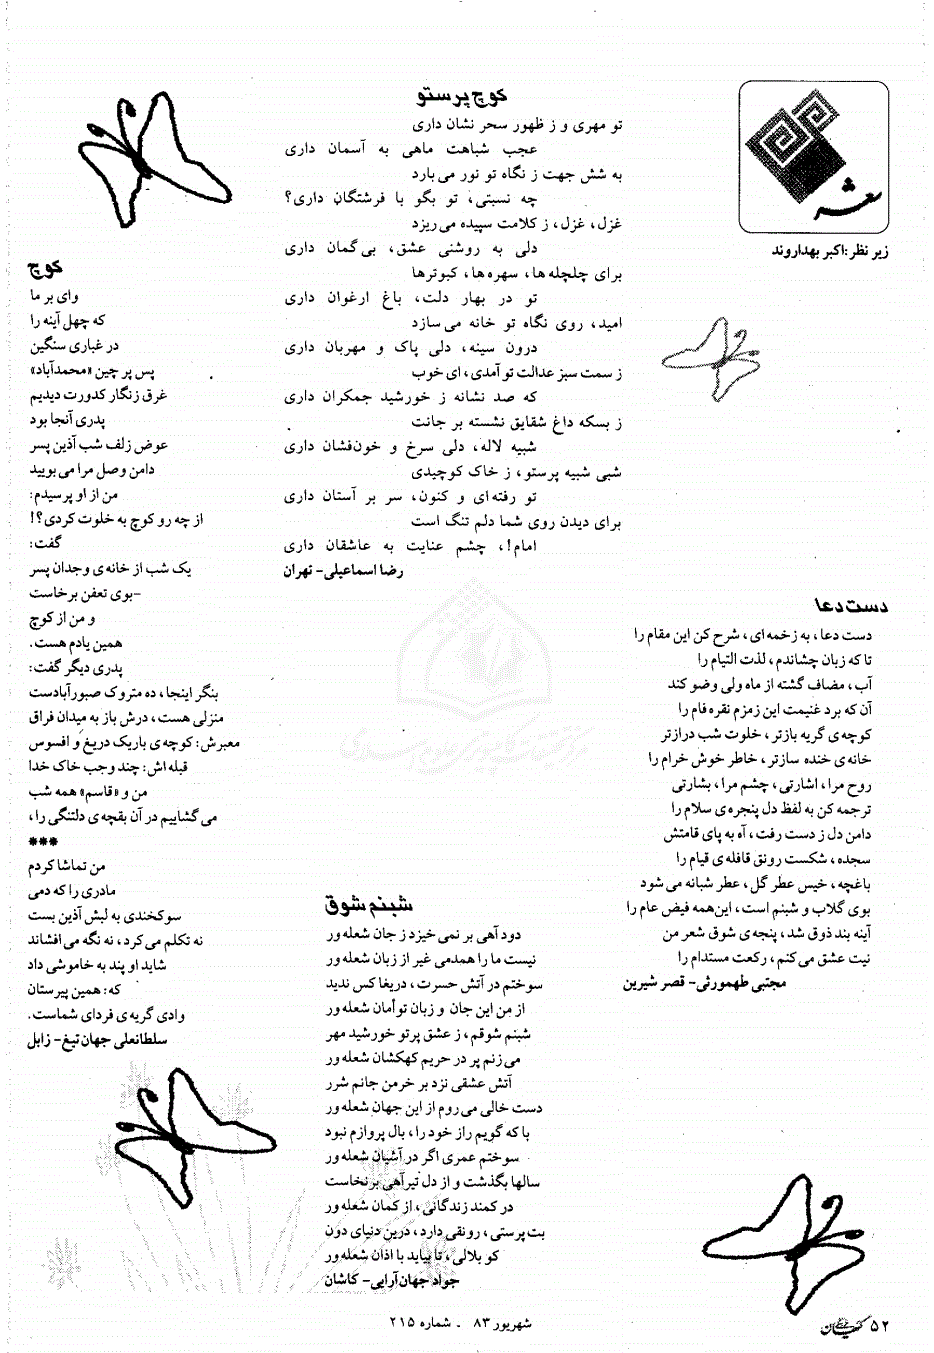 شعر
زیر نظر: اکبر بهداروند
کوچ پرستو
تو مهری و ز ظهور سحر نشان داری
عجب شباهت ماهی به آسمان داری
به شش جهت ز نگاه تو نور می‌بارد
چه نسبتی، تو بگو با فرشتگان داری؟
غزل، غزل، ز کلامت سپیده می‌ریزد
دلی به روشنی عشق، بی‌گمان داری
برای چلچله‌ها، سهره‌ها، کبوترها
تو در بهار دلت، باغ ارغوان داری
امید، روی نگاه تو خانه می‌سازد
درون سینه، دلی پاک و مهربان داری
ز سمت سبز عدالت تو آمدی، ای خوب
که صد نشانه ز خورشید جمکران داری
ز بسکه داغ شقایق نشسته بر جانت
شبیه لاله، دلی سرخ و خون‌فشان داری
شبی شبیه پرستو، ز خاک کوچیدی
تو رفته‌ای و کنون، سر بر آستان داری
برای دیدن روی شما دلم تنگ است
امام!، چشم عنایت به عاشقان داری
رضا اسماعیلی- تهران
دست دعا
دست دعا، به زخمه‌ای، شرح کن این مقام را
تا که زبان چشاندم، لذت التیام را
آب، مضاف گشته از ماه ولی وضو کند
آن که برد غنیمت این زمزم نقره فام را
کوچه‌ی گریه بازتر، خلوت شب درازتر
خانه‌ی خنده سازتر، خاطر خوش خرام را
روح مرا، اشارتی، چشم مرا، بشارتی
ترجمه کن به لفظ دل پنجره‌ی سلام را
دامن دل ز دست رفت، آه به پای قامتش
سجده، شکست رونق قافله‌ی قیام را
باغچه، خیس عطر گل، عطر شبانه می‌شود
بوی گلاب و شبنم است، این‌همه فیض عام را
آینه بند ذوق شد، پنجه‌ی شوق شعر من
نیت عشق می‌کنم، رکعت مستدام را
مجتبی طهمورثی- قصر شیرین
شبنم شوق
دود آهی بر نمی‌خیزد ز جان شعله‌ور
نیست ما را همدمی غیر از زبان شعله‌ور
سوختم در آتش حسرت، دریغا کس ندید
از من این جان و زبان توأمان شعله‌ور
شبنم شوقم، ز عشق پرتو خورشید مهر
می‌زنم پر در حریم کهکشان شعله‌ور
آتش عشقی نزد بر خرمن جانم شرر
دست خالی می‌روم از این جهان شعله‌ور
با که گویم راز خود را، بال پروازم نبود
سوختم عمری اگر در آشیان شعله‌ور
سالها بگذشت و از دل تیر آهی برنخاست
در کمند زندگانی، از کمان شعله‌ور
بت‌پرستی، رونقی دارد، درین دنیای دون
کو بلالی، تا بیاید با اذان شعله‌ور
جواد جهان‌آرایی- کاشان
کوچ
وای بر ما
که چهل آینه را
در غباری سنگین
پس پرچین «محمدآباد»
غرق زنگار کدورت دیدیم
پدری آنجا بود
عوض زلف شب آذین پسر
دامن وصل مرا می‌بویید
من از او پرسیدم:
از چه رو کوچ به خلوت کردی؟!
گفت:
یک شب از خانه‌ی وجدان پسر
-بوی تعفن برخاست
و من از کوچ
همین یادم هست.
پدری دیگر گفت:
بنگر اینجا، ده متروک صبورآبادست
منزلی هست، درش باز به میدان فراق
معبرش: کوچه‌ی باریک دریغ و افسوس
قبله‌اش: چند وجب خاک خدا
من و «قاسم» همه شب
می‌گشاییم در آن بقچه‌ی دلتنگی را،
***
من تماشا کردم
مادری را که دمی
سوکخندی به لبش آذین بست
نه تکلم می‌کرد، نه نگه می‌افشاند
شاید او پند به خاموشی داد
که: همین پیرستان
وادی گریه‌ی فردای شماست.
سلطانعلی جهان‌تیغ- زابل
۵۲ کیهان فرهنگی
شهریور ۸۳ - شماره ۲۱۵
مرکز تحقیقات کامپیوتری علوم اسلامی